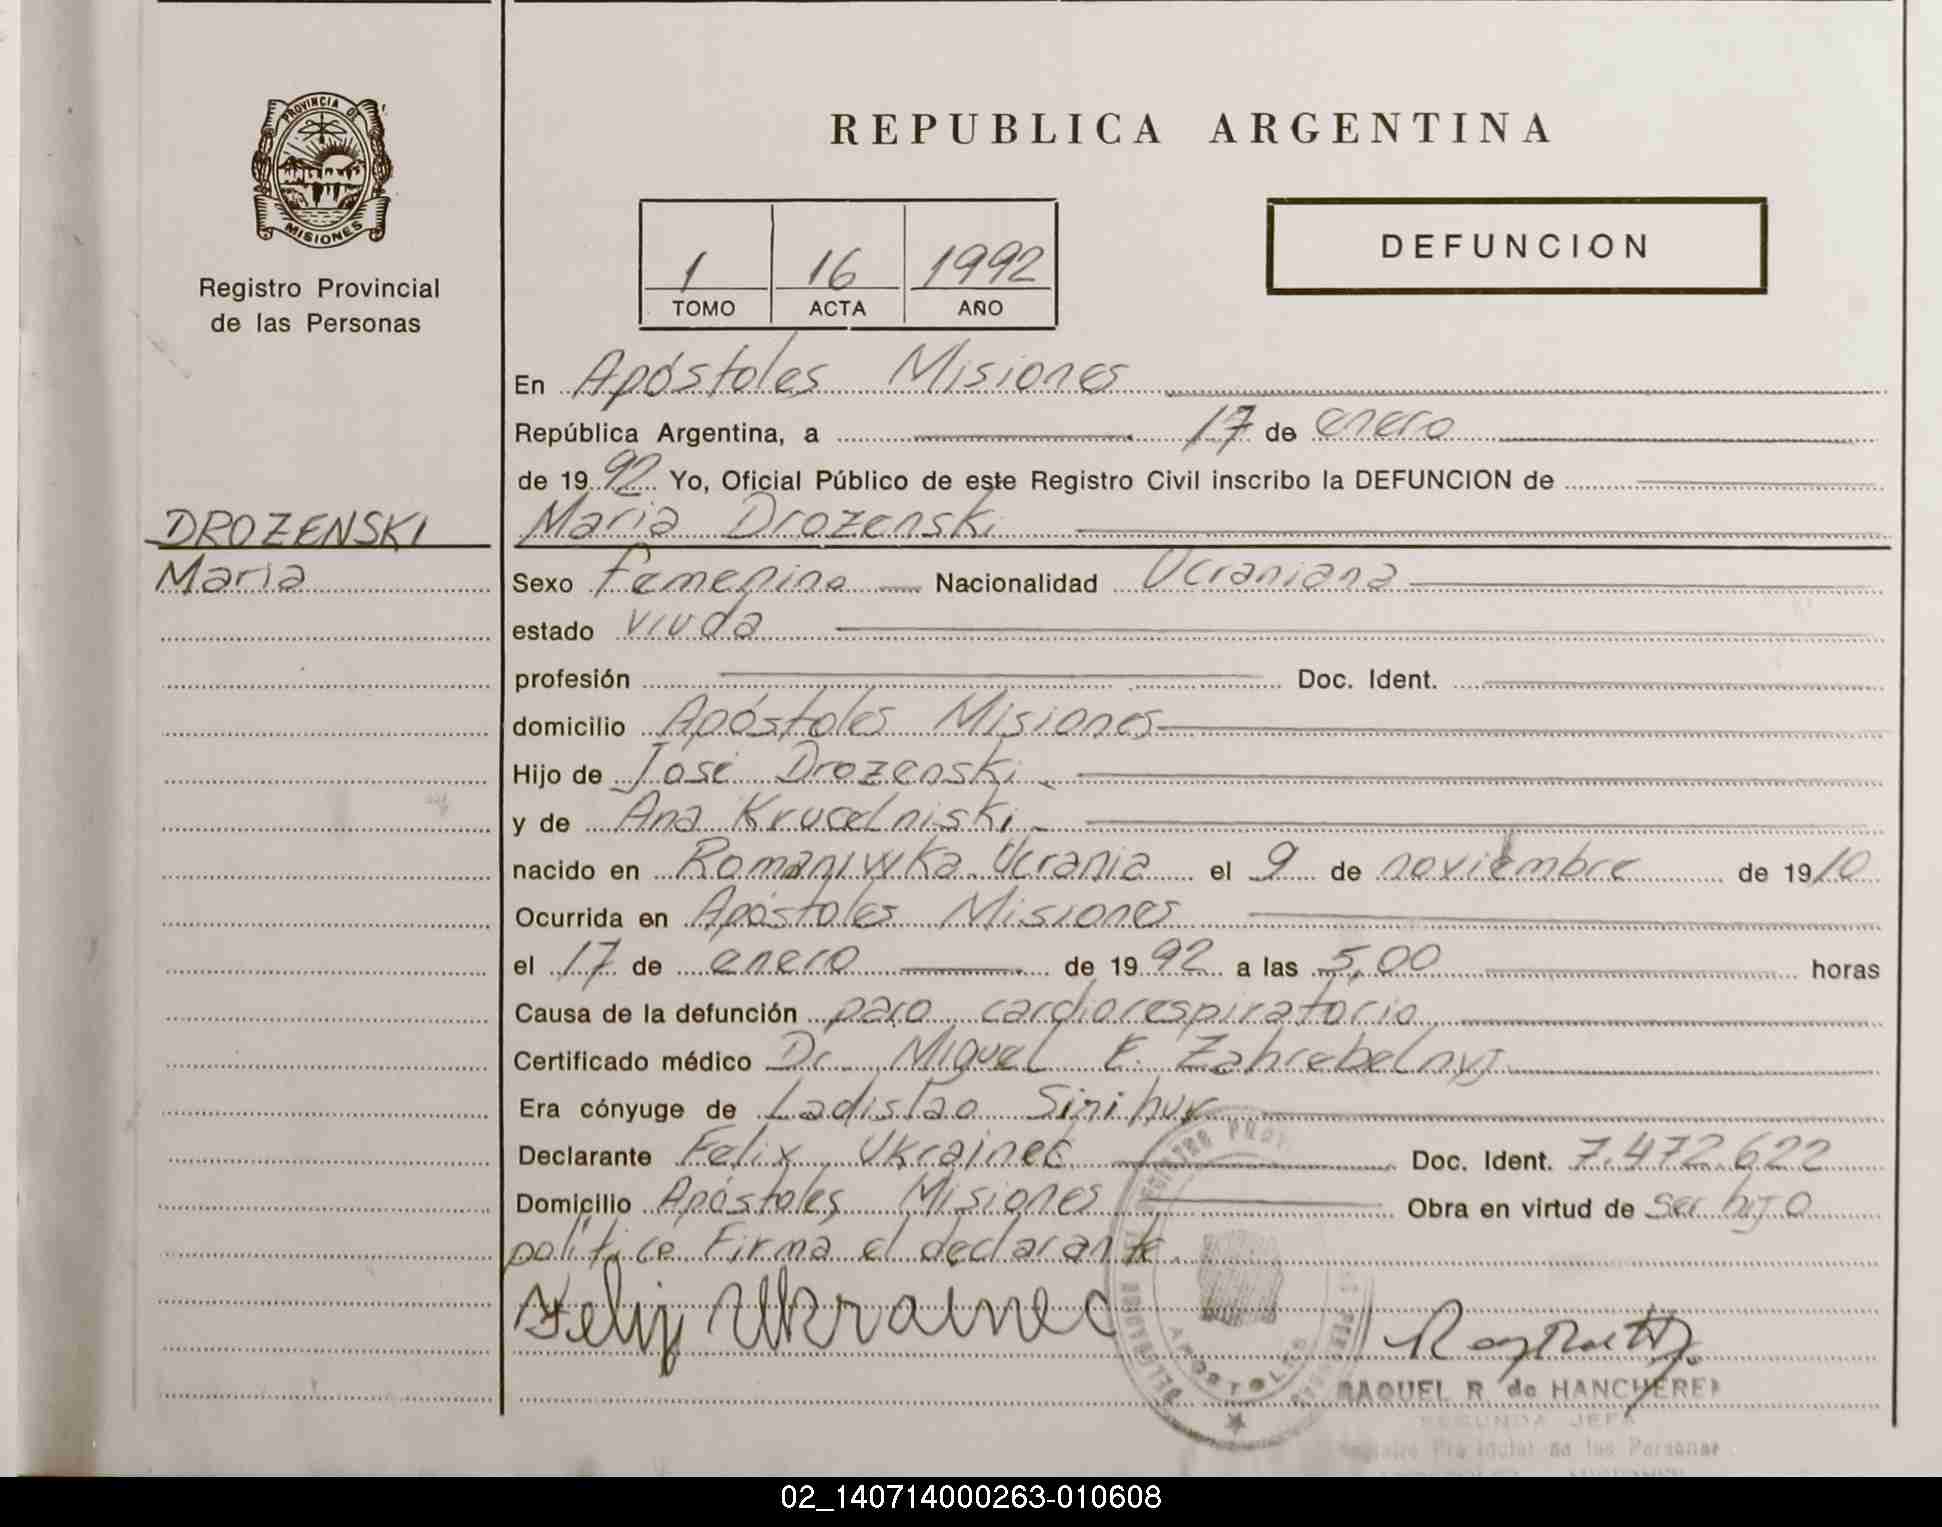 PROVINCIA DE
MISIONES
Registro Provincial
de las Personas
DROZENSKI
Maria
REPUBLICA ARGENTINA
1 16 1992
TOMO ACTA AÑO
DEFUNCION
En Apóstoles Misiones
República Argentina, a 17 de enero
de 1992 Yo, Oficial Público de este Registro Civil inscribo la DEFUNCION de
Maria Drozenski
Sexo Femenino Nacionalidad Ucraniana
estado viuda
profesión Doc. Ident.
domicilio Apóstoles Misiones
Hijo de José Drozenski
y de Ana Krucelniski
nacido en Romaniwka Ucrania el 9 de noviembre de 1910
Ocurrida en Apóstoles Misiones
el 17 de enero de 1992 a las 5,00 horas
Causa de la defunción paro cardiorespiratorio
Certificado médico Dr. Miguel E. Zahrebelnyj
Era cónyuge de Ladislao
Declarante Felix Ukrainec Doc. Ident. 7.472.622
Domicilio Apóstoles Misiones Obra en virtud de ser hijo
político Firma el declarante.
Felix Ukrainec
APOSTOLES
RAQUEL R. de HANCHEREK
SEGUNDA JEFA
Registro Provincial de las Personas
02_140714000263-010608